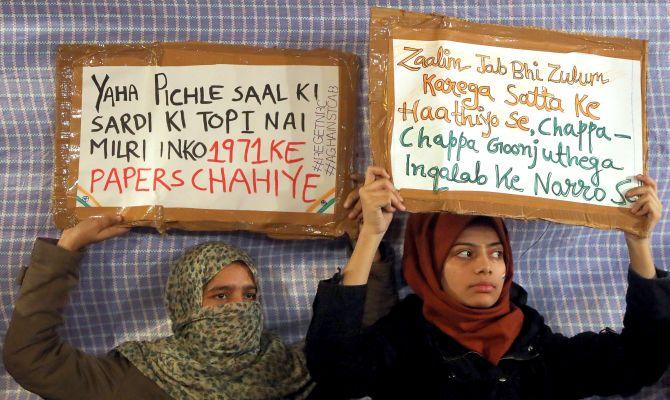 YAHA PICHLE SAAL KI
SARDI KI TOPI NAI
MILRI INKO 1971 KE
PAPERS CHAHIYE
#AGHAINSTCAB
Zaalim Jab Bhi Zulum
Karega Satta Ke
Haathiyo se, Chappa -
Chappa Goonjuthega
Inqalab Ke Narro Se